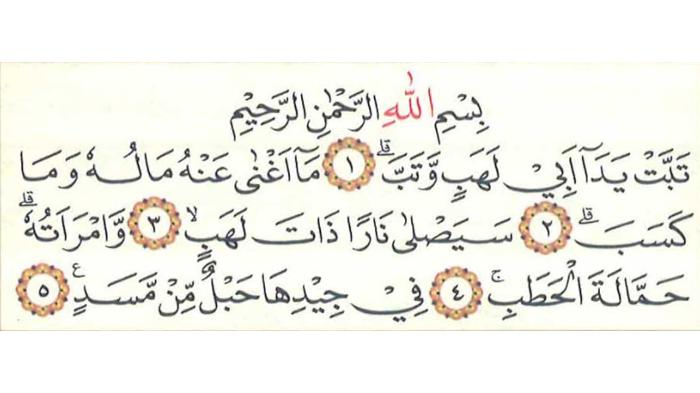 بِسْمِ اللّٰهِ الرَّحْمٰنِ الرَّحِيْمِ
تَبَّتْ يَدَآ اَبِيْ لَهَبٍ وَّتَبَّ ۗ ١ مَآ اَغْنٰى عَنْهُ مَالُهٗ وَمَا
كَسَبَ ۗ ٢ سَيَصْلٰى نَارًا ذَاتَ لَهَبٍ ۙ ٣ وَّامْرَاَتُهٗ ۗ
حَمَّالَةَ الْحَطَبِ ۚ ٤ فِيْ جِيْدِهَا حَبْلٌ مِّنْ مَّسَدٍ ࣖ ٥